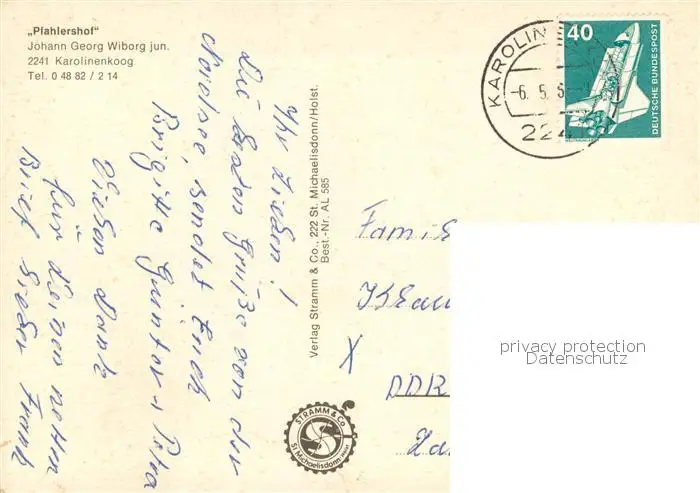 „Pfahlershof“
Johann Georg Wiborg jun.
2241 Karolinenkoog
Tel. 0 48 82 / 2 14
Ihr Lieben!
Die Grüße von der
Nordsee, sendet Euch
Brigitte Günter + Petra
Vielen Dank
für deinen netten
Brief lieber Frank
Verlag Stramm & Co., 222 St. Michaelisdonn/Holst.
Best.-Nr. AL 585
STRAMM & Co
St. Michaelisdonn
KAROLIN
-6. 5.
224
40
DEUTSCHE BUNDESPOST
Famil
X
DDR
privacy protection
Datenschutz